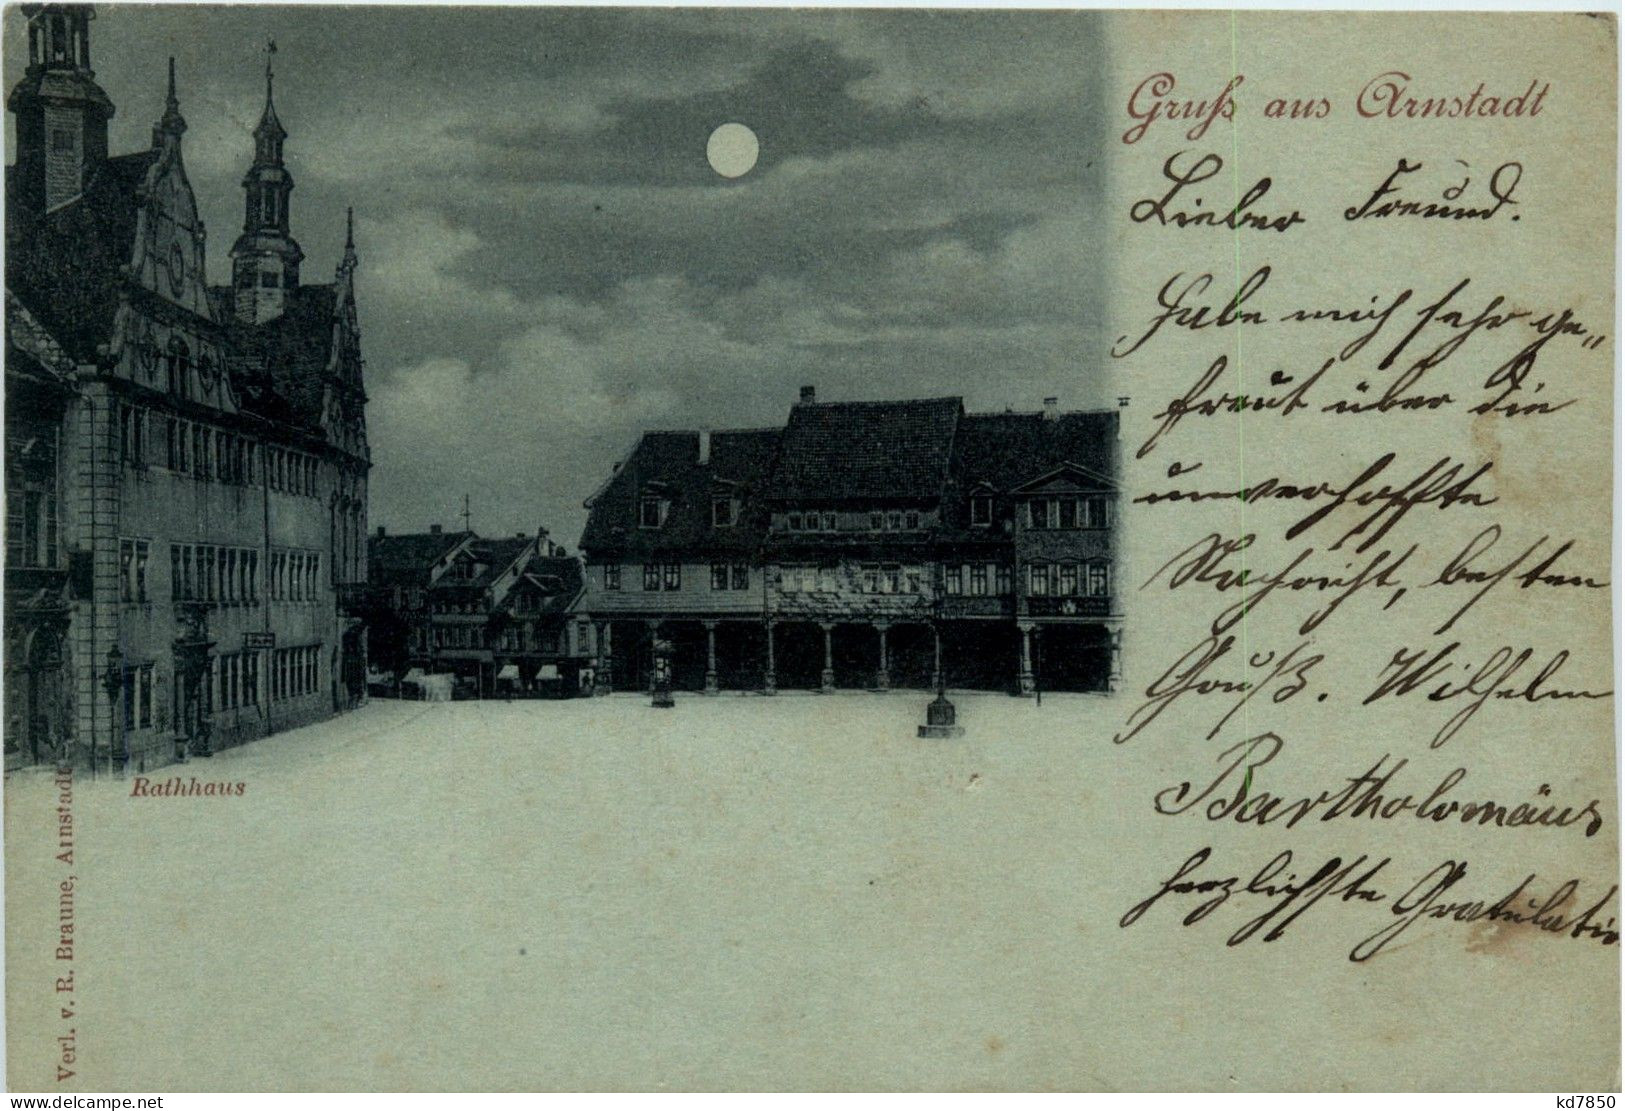 Gruß aus Arnstadt
Lieber Freund.
Habe mich sehr ge„
freut über die
unverhoffte
Nachricht, besten
Gruß. Wilhelm
Bartholomäus
herzlichste Gratulatio
Rathhaus
Verl. v. R. Braune, Arnstadt
delcampe.net
kd7850